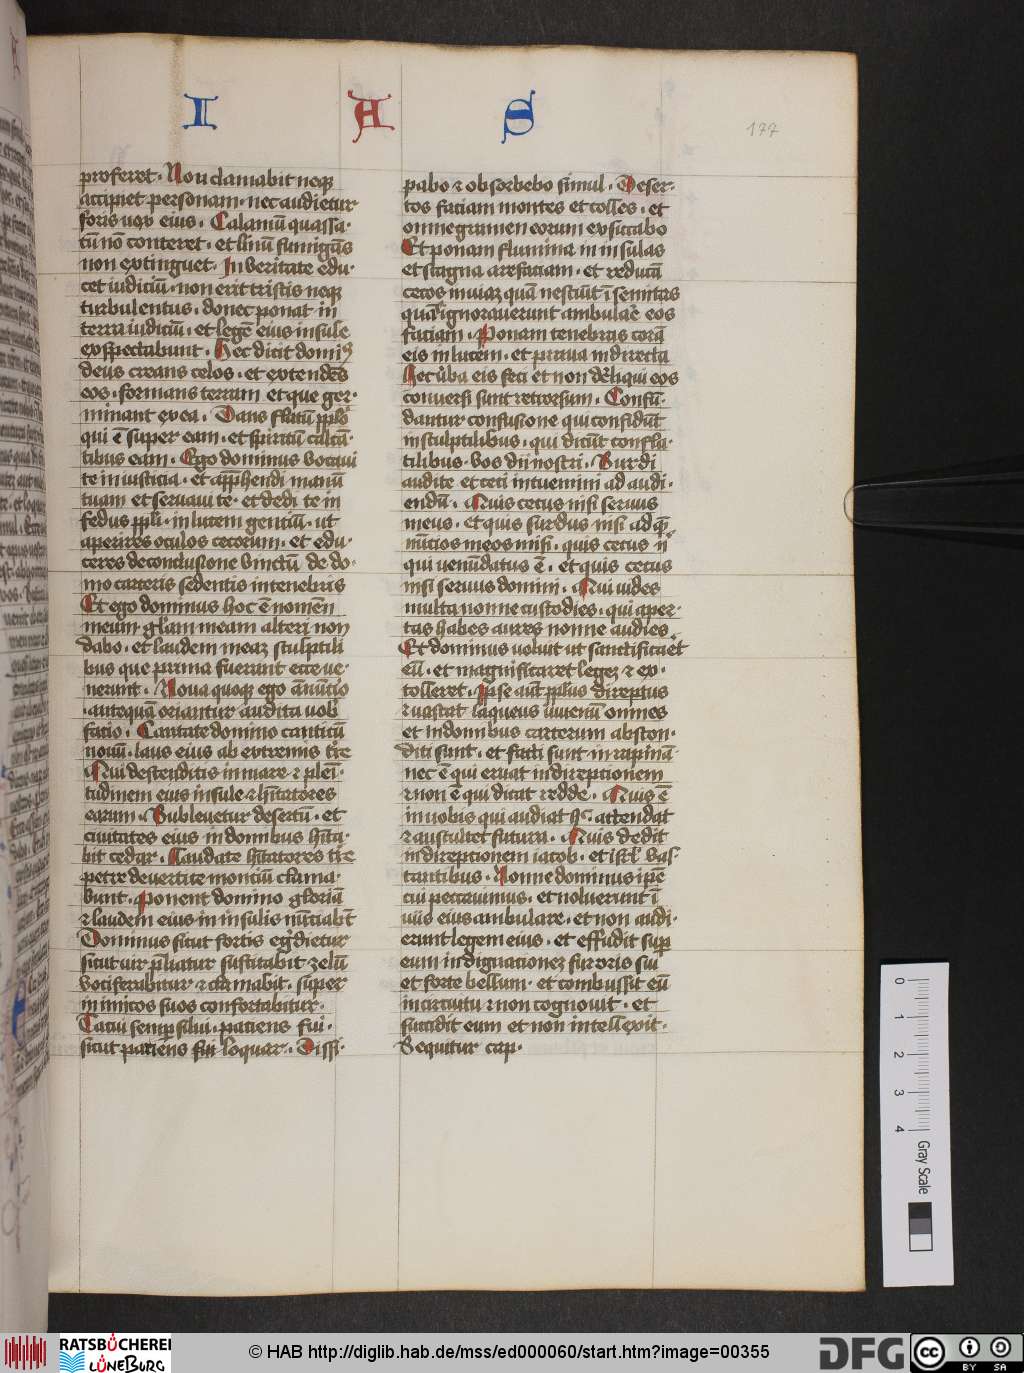 I H S
177
proferet. Non clamabit neq₃
accipiet personam. nec audietur
foris vox eius. Calamū quassa-
tū nō conteret. et linū fumigās
non extinguet. In veritate edu-
cet iudiciū. non erit tristis neq₃
turbulentus. donec ponat in
terra iudiciū. et legē eius insule
exspectabunt. Hec dicit domi9
deus creans celos. et extendēs
eos. formans terram et que ger-
minant ex ea. Dans flatū pplo
qui ē super eam. et spiritū calcā-
tibus eam. Ego dominus vocavi
te in iusticia. et appħendi manū
tuam et servavi te. et dedi te in
fedus ppli. in lucem gentiū. ut
aperires oculos cecorum. et edu-
ceres de conclusione vinctū de do-
mo carceris sedentis in tenebris
Et ego dominus hoc ē nomen
meum. glam meam alteri non
dabo. et laudem meaz sculptili
bus que prima fuerunt ecce ve-
nerunt. Nova quoq₃ ego ānūcio
antequā oriantur audita vob
facio. Cantate domino canticū
novū. laus eius ab extremis tre
Qui descenditis in mare et pleni-
tudinem eius insule et hitatores
earum. Sublevetur desertū. et
civitates eius in domibus hita-
bit cedar. Laudate hitatores tre
petre de vertice montiū clama-
bunt. Ponent domino gloriā
et laudem eius in insulis nūciabt
Dominus sicut fortis egdietur
sicut vir pliatur suscitabit zelū
vociferabitur et clamabit. super
inimicos suos confortabitur.
Tacui semp silui. patiens fui.
sicut pariēns fui loquar. Dissi-
pabo et obsorbebo simul. Deser-
tos faciam montes et colles. et
omne gramen eorum exsiccabo
Et ponam flumina in insulas
et stagna arefaciam. et reducā
cecos in viaz quā nesciūt ī semitas
quas ignoraverunt ambulare eos
faciam. Ponam tenebras corā
eis in lucem. et prava in directa
Hec vba eis feci et non dreliqui eos
conversi sunt retrorsum. Confū-
dantur confusione qui confidūt
in sculptilibus. qui dicūt confla-
tilibus. vos dii nostri. Surdi
audite et ceci intuemini ad audi-
endū. Quis cecus nisi servus
meus. et quis surdus nisi ad quē
nūcios meos misi. quis cecus n
qui venūdatus ē. et quis cecus
nisi servus domini. Qui vides
multa nonne custodies. qui aper-
tas habes aures nonne audies
Et dominus voluit ut sanctificaret
eū. et magnificaret legez et ex-
tolleret. Ipse aūt pplus direptus
et vastat laqueus iuvenū omnes
et in domibus carcerum abscon-
diti sunt. et facti sunt in rapinā
nec ē qui eruat in direptionem
et non ē qui dicat redde. Quis ē
in vobis qui audiat h. attendat
et auscultet futura. Quis dedit
in direptionem iacob. et isrl vas-
tantibus. Nonne dominus ipe
cui peccavimus. et noluerunt ī
viis eius ambulare. et non audi-
erunt legem eius. et effudit sup
eum indignationez furoris sui
et forte bellum. et combussit eū
in circuitu et non cognovit. et
succidit eum et non intellexit.
Sequitur cap.
0 1 2 3 4
Gray Scale
RATSBÜCHEREI
LÜNEBURG
© HAB http://diglib.hab.de/mss/ed000060/start.htm?image=00355
DFG
cc BY SA